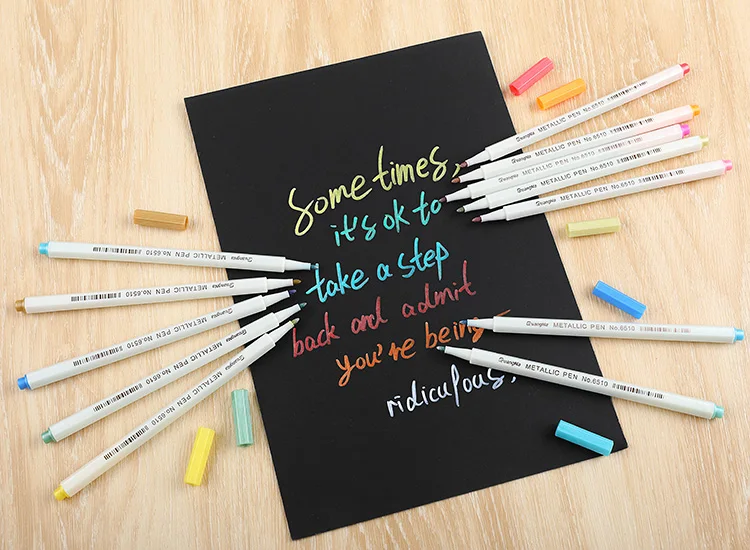 Sometimes,
it's ok to
take a step
back and admit
you're being
ridiculous.
METALLIC PEN No.6510
METALLIC PEN No.6510
METALLIC PEN No.6510
METALLIC PEN No.6510
METALLIC PEN No.6510
METALLIC PEN No.6510
METALLIC PEN No.6510
METALLIC PEN No.6510
METALLIC PEN No.6510
METALLIC PEN No.6510
METALLIC PEN No.6510
METALLIC PEN No.6510